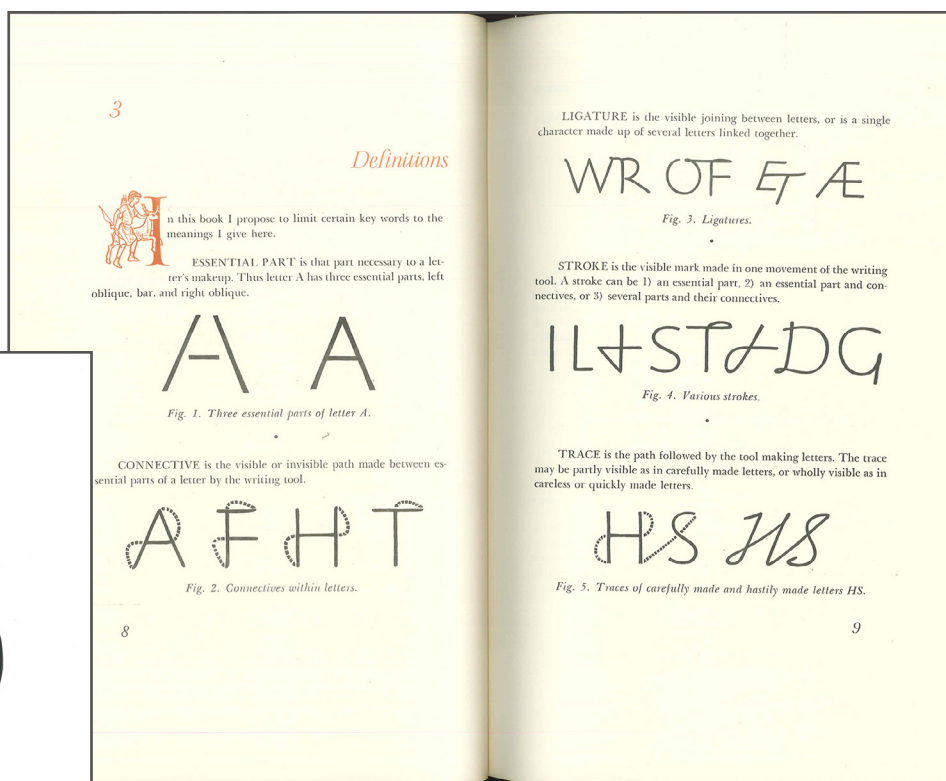 3
Definitions
In this book I propose to limit certain key words to the
meanings I give here.
ESSENTIAL PART is that part necessary to a let-
ter's makeup. Thus letter A has three essential parts, left
oblique, bar, and right oblique.
A A
Fig. 1. Three essential parts of letter A.
CONNECTIVE is the visible or invisible path made between es-
sential parts of a letter by the writing tool.
A F H T
Fig. 2. Connectives within letters.
8
LIGATURE is the visible joining between letters, or is a single
character made up of several letters linked together.
WR OF ET Æ
Fig. 3. Ligatures.
STROKE is the visible mark made in one movement of the writing
tool. A stroke can be 1) an essential part, 2) an essential part and con-
nectives, or 3) several parts and their connectives.
Fig. 4. Various strokes.
TRACE is the path followed by the tool making letters. The trace
may be partly visible as in carefully made letters, or wholly visible as in
careless or quickly made letters.
HS HS
Fig. 5. Traces of carefully made and hastily made letters HS.
9